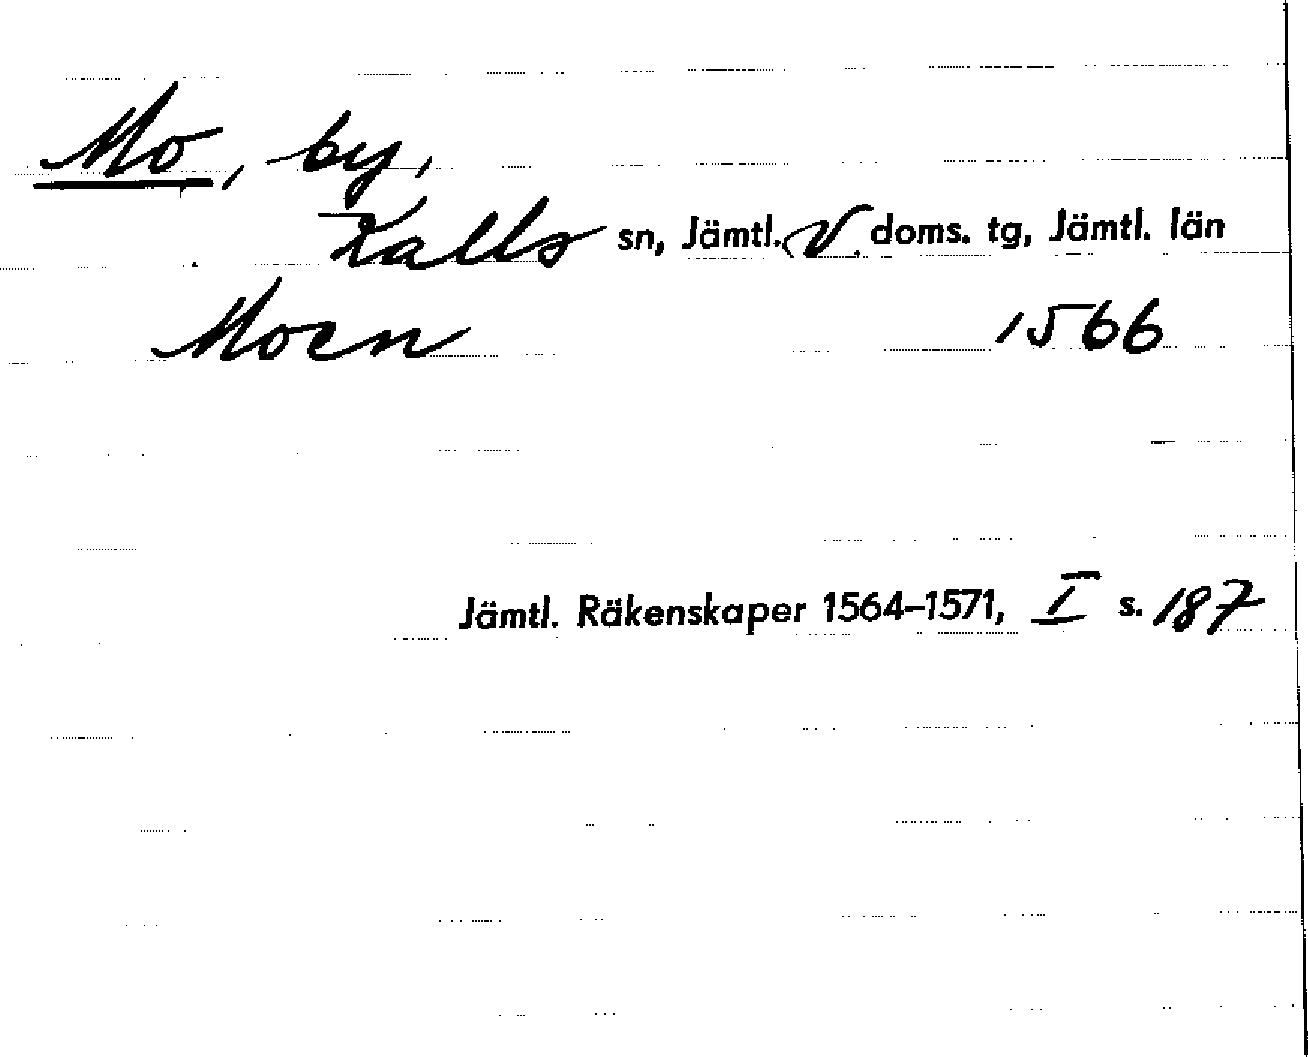 Mo, by,
Kalls sn, Jämtl. V. doms. tg, Jämtl. län
Moen 1566
Jämtl. Räkenskaper 1564–1571, I s. 187